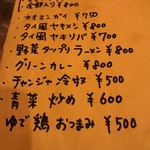 ・カオマンガイ ¥750
・タイ風ヤキメシ ¥800
・タイ風ヤキソバ ¥700
・野菜タップリラーメン ¥800
・グリーンカレー ¥800
・チャンジャ冷奴 ¥500
・青菜炒め ¥600
・ゆで鶏おつまみ ¥500